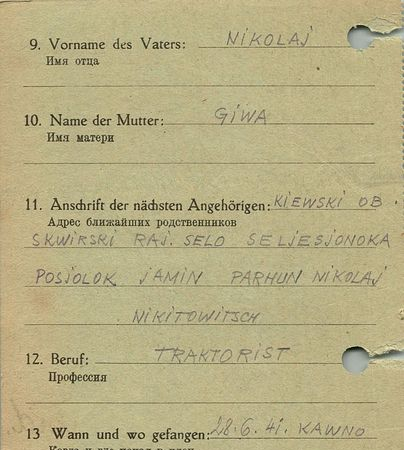 9. Vorname des Vaters: NIKOLAJ
Имя отца
10. Name der Mutter: GIWA
Имя матери
11. Anschrift der nächsten Angehörigen: KIEWSKI OB.
Адрес ближайших родственников
SKWIRSKI RAJ. SELO SELJESJONOKA
POSJOLOK JAMIN PARHUN NIKOLAJ
NIKITOWITSCH
12. Beruf: TRAKTORIST
Профессия
13 Wann und wo gefangen: 28.6.41. KAWNO